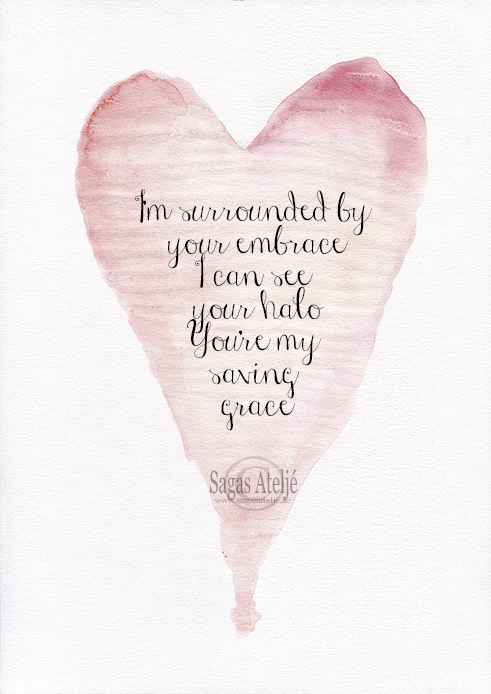 I'm surrounded by
your embrace
I can see
your halo
You're my
saving
grace
Sagas Ateljé
www.sagasatelje.se